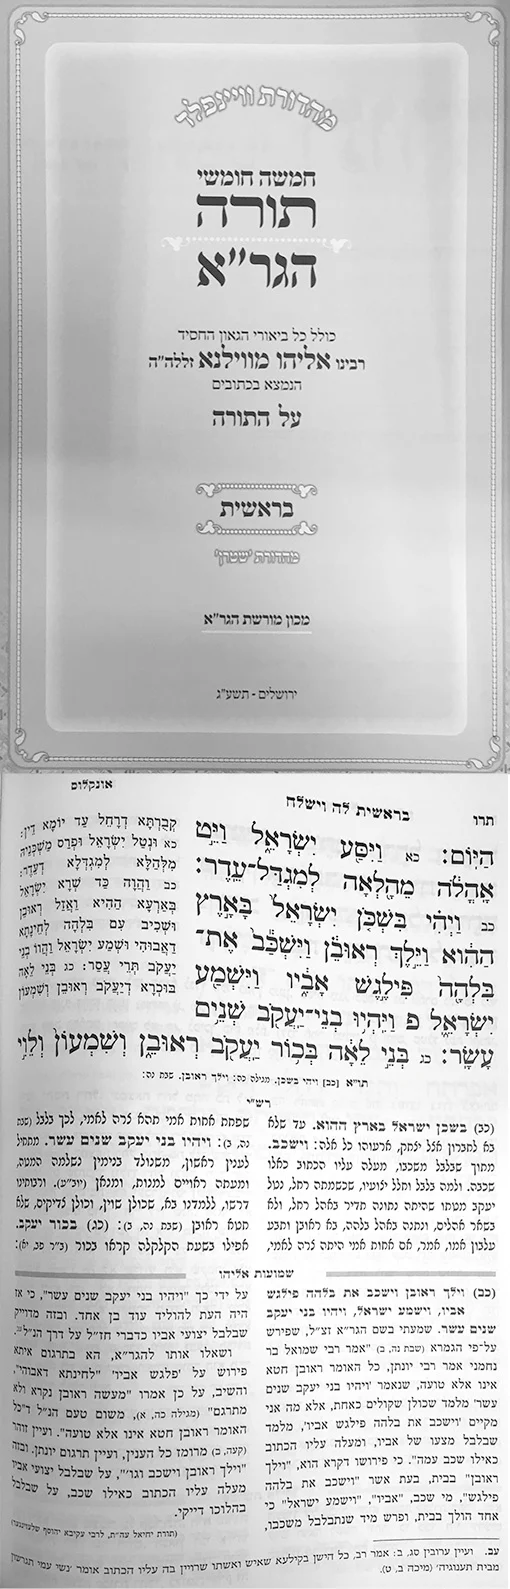 מהדורת וויינפלד
חמשה חומשי
תורה
הגר״א
כולל כל ביאורי הגאון החסיד
רבינו אליהו מווילנא זללה״ה
הנמצא בכתובים
על התורה
בראשית
מהדורת ׳שטרן׳
מכון מורשת הגר״א
ירושלים - תשע״ג
תרו
בראשית לה וישלח
אונקלוס
הַיּוֹם: כא וַיִּסַּע יִשְׂרָאֵל וַיֵּט
אָהֳלֹה מֵהָלְאָה לְמִגְדַּל־עֵדֶר:
כב וַיְהִי בִּשְׁכֹּן יִשְׂרָאֵל בָּאָרֶץ
הַהִוא וַיֵּלֶךְ רְאוּבֵן וַיִּשְׁכַּב אֶת־
בִּלְהָה פִּילֶגֶשׁ אָבִיו וַיִּשְׁמַע
יִשְׂרָאֵל פ וַיִּהְיוּ בְנֵי־יַעֲקֹב שְׁנֵים
עָשָׂר: כג בְּנֵי לֵאָה בְּכוֹר יַעֲקֹב רְאוּבֵן וְשִׁמְעוֹן וְלֵוִי
קְבֻרְתָּא דְרָחֵל עַד יוֹמָא דֵין:
כא וּנְטַל יִשְׂרָאֵל וּפְרַס מַשְׁכְּנֵיהּ
מִלְּהַלָּא לְמִגְדְּלָא דְעֵדֶר:
כב וַהֲוָה כַּד שְׁרָא יִשְׂרָאֵל
בְּאַרְעָא הַהִיא וַאֲזַל רְאוּבֵן
וּשְׁכֵיב עִם בִּלְהָה לְחֵינְתָא
דַאֲבוּהִי וּשְׁמַע יִשְׂרָאֵל וַהֲווֹ בְנֵי
יַעֲקֹב תְּרֵי עֲסַר: כג בְּנֵי לֵאָה
בּוּכְרָא דְיַעֲקֹב רְאוּבֵן וְשִׁמְעוֹן
תו״א [כב] ויהי בשכן. מגילה כה: וילך ראובן. שבת נה:
רש״י
(כב) בשכן ישראל בארץ ההוא. עד שלא
בא לחברון אצל יצחק, ארעוהו כל אלה: וישכב.
מתוך שבלבל משכבו, מעלה עליו הכתוב כאלו
שכבה. ולמה בלבל וחלל יצועיו, שכשמתה רחל, נטל
יעקב מטתו שהיתה נתונה תדיר באהל רחל, ולא
בשאר אהלים, ונתנה באהל בלהה, בא ראובן ותבע
עלבון אמו, אמר, אם אחות אמי היתה צרה לאמי,
שפחת אחות אמי תהא צרה לאמי, לכך בלבל (שבת
נה, ב): ויהיו בני יעקב שנים עשר. מתחיל
לענין ראשון, משנולד בנימין נשלמה המטה,
ומעתה ראויים למנות, ומנאן (יוב״ע). ורבותינו
דרשו, ללמדנו בא, שכולן שוין, וכולן צדיקים, שלא
חטא ראובן (שבת נה, ב): (כג) בכור יעקב.
אפילו בשעת הקלקלה קראו בכור (ב״ר פב, יא):
שמועות אליהו
(כב) וילך ראובן וישכב את בלהה פילגש
אביו, וישמע ישראל, ויהיו בני יעקב
שנים עשר. שמעתי בשם הגר״א זצ״ל, שפירש
על־פי הגמרא (שבת נה, ב) ״אמר רבי שמואל בר
נחמני אמר רבי יונתן, כל האומר ראובן חטא
אינו אלא טועה, שנאמר ׳ויהיו בני יעקב שנים
עשר׳ מלמד שכולן שקולים כאחת, אלא מה אני
מקיים ׳וישכב את בלהה פילגש אביו׳, מלמד
שבלבל מצעו של אביו, ומעלה עליו הכתוב
כאילו שכב עמה״. כי פירושו דקרא הוא, ״וילך
ראובן״ בבית, בעת אשר ״וישכב את בלהה
פילגש״, מי שכב, ״אביו״, ״וישמע ישראל״ כי
אחד הולך בבית, ופרש מיד שנתבלבל משכבו,
על ידי כך ״ויהיו בני יעקב שנים עשר״, כי אז
היה העת להוליד עוד בן אחד. ובזה מדוייק
שבלבל יצועי אביו כדברי חז״ל על דרך הנ״ל.
ושאלו אותו להגר״א, הא בתרגום איתא
פירוש על ׳פלגש אביו׳ ״לחינתא דאבוהי״,
והשיב, על כן אמרו ״מעשה ראובן נקרא ולא
מתרגם״ (מגילה כה, א), משום טעם הנ״ל ד״כל
האומר ראובן חטא אינו אלא טועה״. ועיין זוהר
(קעה, ב) מרומז כל הענין, ועיין תרגום יונתן. ובזה
״וילך ראובן וישכב וגו׳״, על שבלבל יצועי אביו
מעלה עליו הכתוב כאילו שכב, על שבלבל
בהלוכו דייקי.
(תורת יחיאל עה״ת, לרבי עקיבא יהוסף שלעזינגער)
עב. ועיין ערובין סג, ב: אמר רב, כל הישן בקילעא שאיש ואשתו שרויין בה עליו הכתוב אומר ׳נשי עמי תגרשון
מבית תענוגיה׳ (מיכה ב, ט).